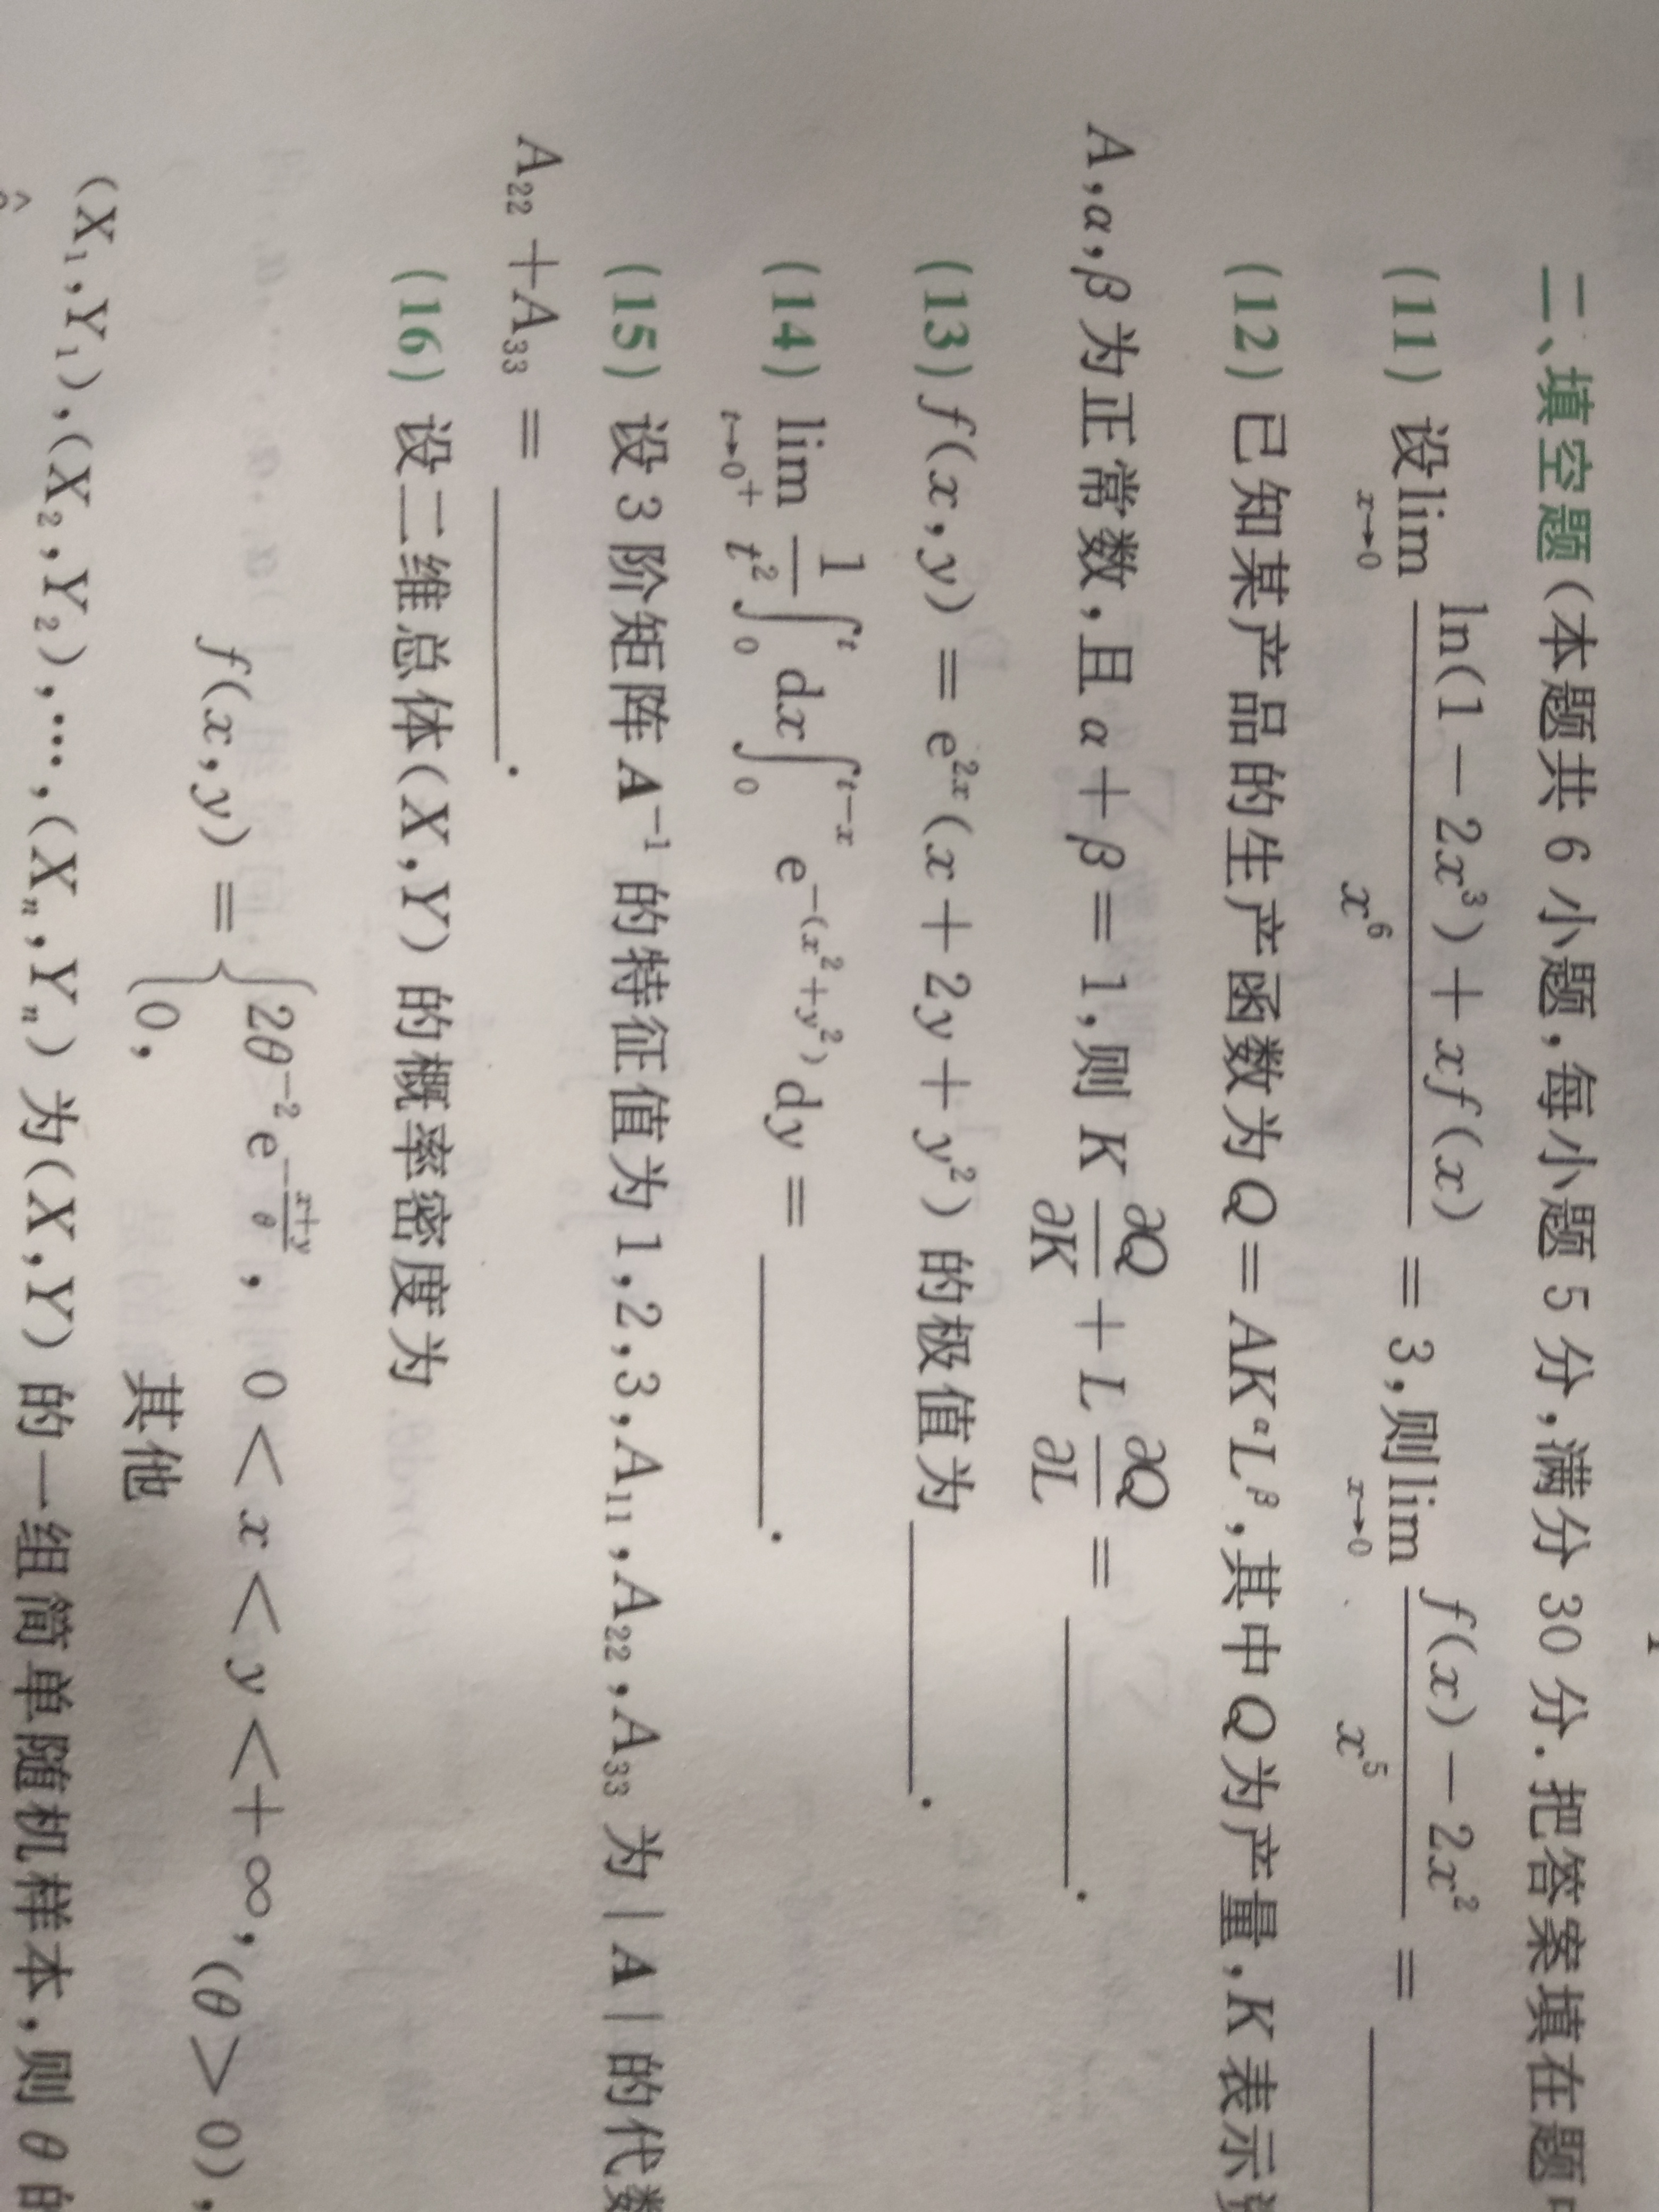 二、填空题(本题共 6 小题,每小题 5 分,满分 30 分. 把答案填在题
(11) 设 lim_{x→0} \frac{ln(1 − 2x³) + xf(x)}{x⁶} = 3,则 lim_{x→0} \frac{f(x) − 2x²}{x⁵} = ______
(12) 已知某产品的生产函数为 Q = AK^α L^β,其中 Q 为产量,K 表示
A,α,β 为正常数,且 α + β = 1,则 K \frac{∂Q}{∂K} + L \frac{∂Q}{∂L} = ______.
(13) f(x,y) = e^{2x}(x + 2y + y²) 的极值为 ______.
(14) lim_{t→0⁺} \frac{1}{t²} ∫_0^t dx ∫_0^{t−x} e^{−(x²+y²)} dy = ______.
(15) 设 3 阶矩阵 A⁻¹ 的特征值为 1,2,3,A₁₁,A₂₂,A₃₃ 为 | A | 的代数
A₂₂ + A₃₃ = ______.
(16) 设二维总体(X,Y) 的概率密度为
f(x,y) = { 2θ⁻² e^{−\frac{x+y}{θ}}, 0 < x < y < + ∞, (θ > 0),
0, 其他
(X₁,Y₁),(X₂,Y₂),…,(Xₙ,Yₙ) 为(X,Y) 的一组简单随机样本,则 θ 的